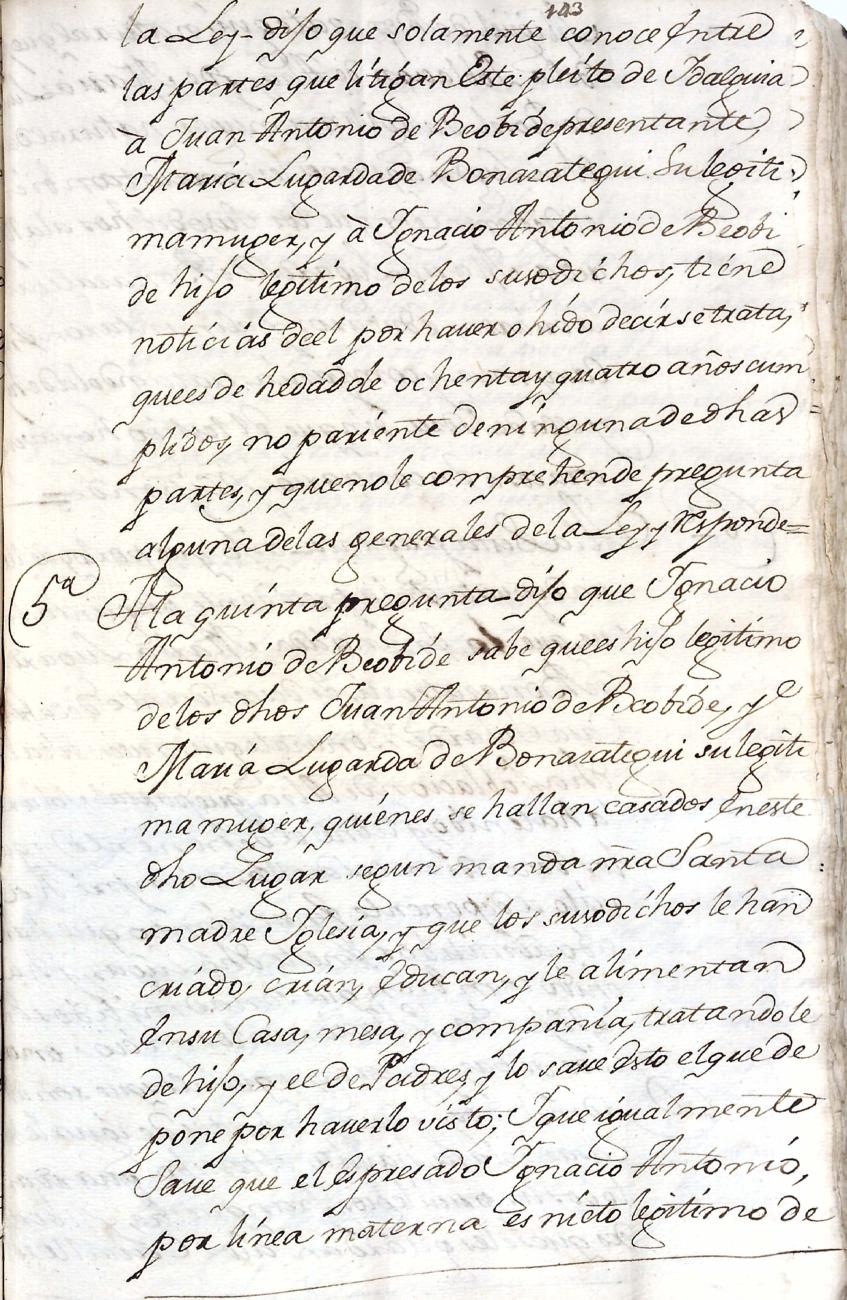 143
la Ley - dijo que solamente conoce entre
las partes que litigan Este pleito de Idalguia
à Juan Antonio de Beobide presentante,
Maria Lugarda de Bonarategui su legiti
ma muger, y à Ignacio Antonio de Beobi
de hijo legitimo de los suxodichos, tiene
noticias deel por haver ohido decir se trata,
que es de hedad de ochenta y quatro años cum
plidos, no pariente de ninguna de dhas
partes, y que no le comprehende pregunta
alguna de las generales de la Ley y responde=
5ª A la quinta pregunta dijo que Ignacio
Antonio de Beobide sabe que es hijo legitimo
de los dhos Juan Antonio de Beobide, y
Maria Lugarda de Bonarategui su legiti
ma muger, quienes se hallan casados en este
dho Lugar segun manda nra Santa
madre Iglesia, y que los suxodichos le han
criado, crian, educan, y le alimentan
en su Casa, mesa, y compañia, tratandole
de hijo, y el de Padres, y lo save esto el que de
pone por haverlo visto; Y que igualmente
Save que el espresado Ignacio Antonio,
por linea materna es nieto legitimo de